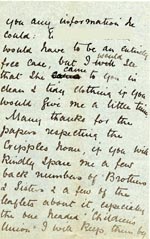 you any information he
could: &
would have to be an entirely
free case, but I would see
that she came to you in
clean & tidy clothing if you
would give me a little time.
Many thanks for the
papers respecting the
Cripples home, if you will
kindly spare me a few
back numbers of Brothers
& Sisters & a few of the
leaflets about it, especially
the one headed "Children's
Union" I will keep them by